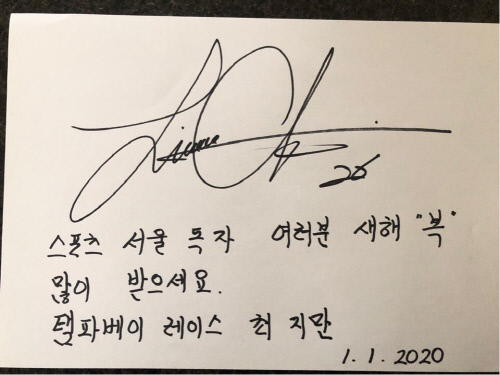 26
스포츠 서울 독자 여러분 새해 "복"
많이 받으세요.
탬파베이 레이스 최 지만
1.1.2020